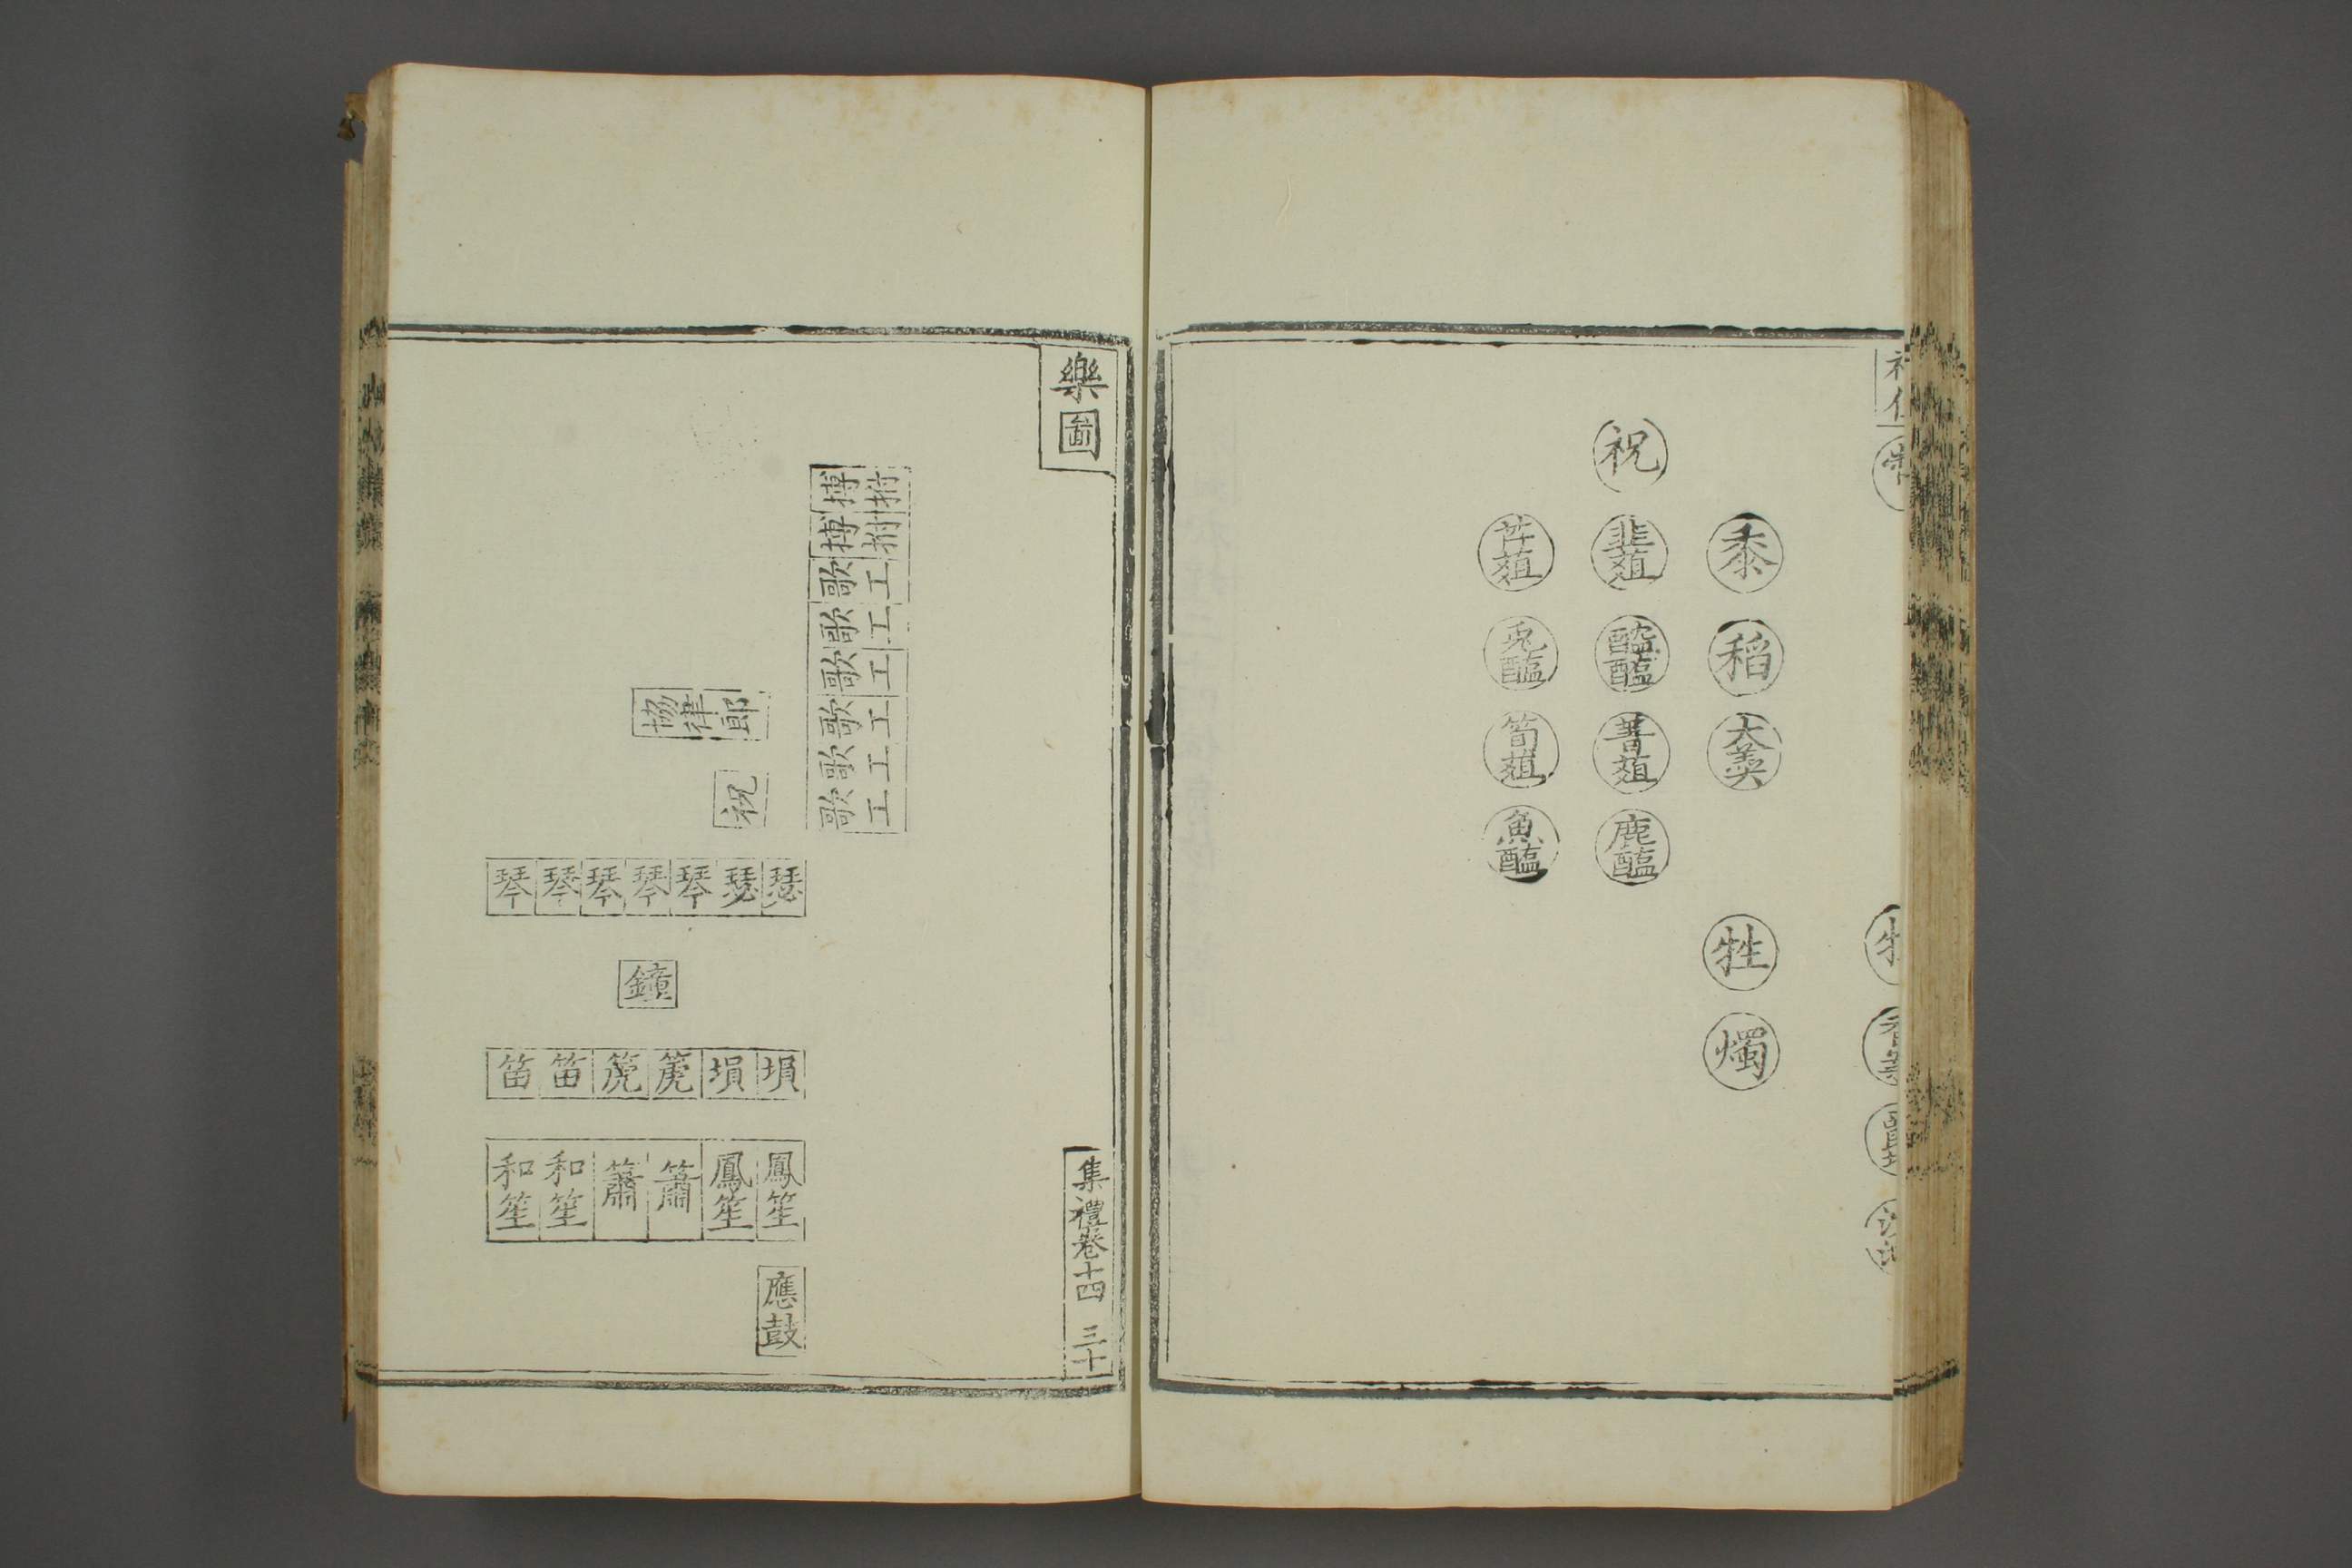 黍
稻
大羹
牲
燭
祝
韭葅
醓醢
菁葅
鹿醢
芹葅
兔醢
筍葅
魚醢
樂圖
集禮卷十四 三十
搏拊
搏拊
歌工
歌工
歌工
歌工
歌工
歌工
協律郎
祝
瑟 瑟 琴 琴 琴 琴 琴
鐘
塤 塤 篪 篪 笛 笛
鳳笙 鳳笙 簫 簫 和笙 和笙
應鼓